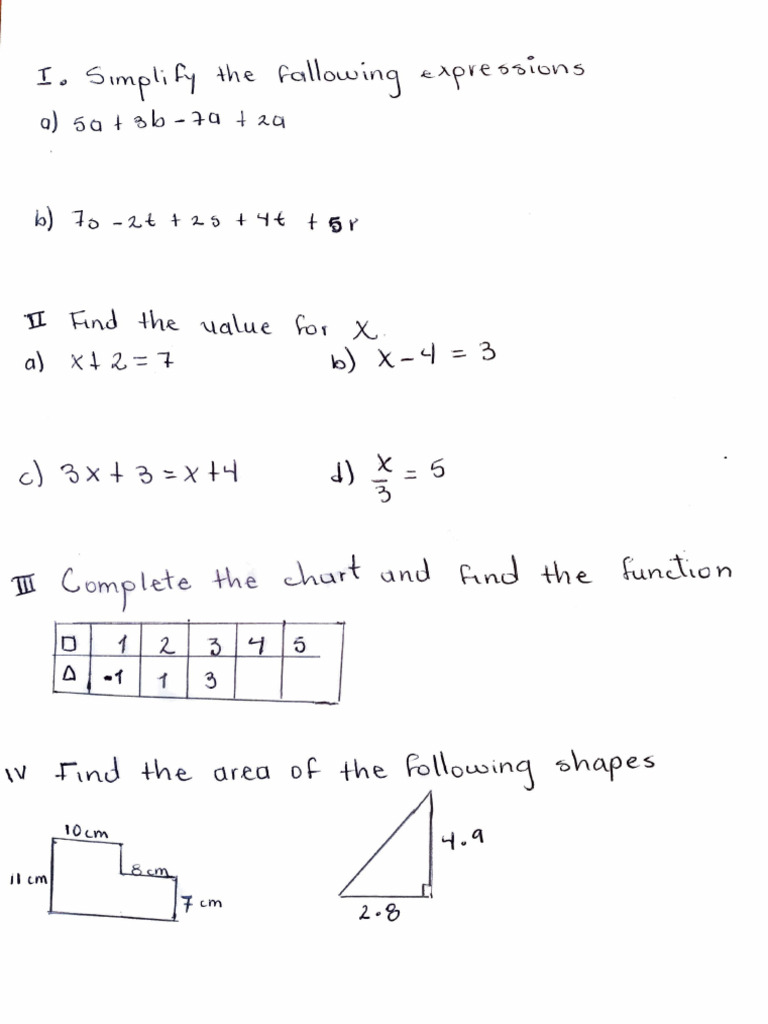 I. Simplify the fallowing expressions
a) 5a + 3b - 7a + 2a
b) 7s - 2t + 2s + 4t + 5r
II Find the value for x.
a) x + 2 = 7 b) x - 4 = 3
c) 3x + 3 = x + 4 d) x/3 = 5
III Complete the chart and find the function
□ 1 2 3 4 5
△ -1 1 3
IV Find the area of the following shapes
10 cm
4.9
8 cm
11 cm
7 cm
2.8